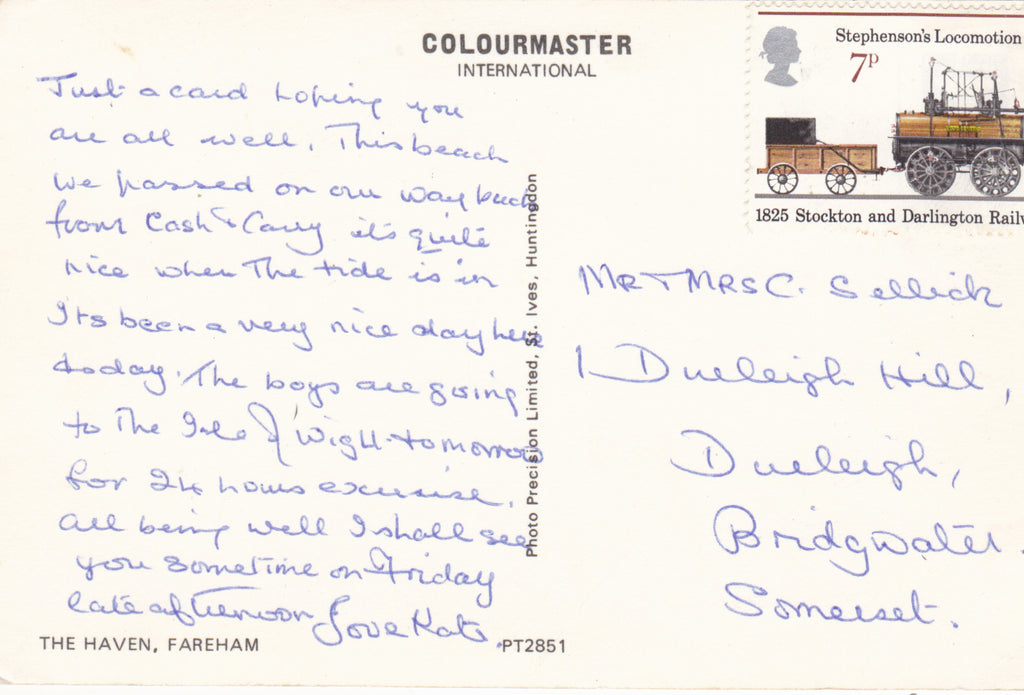 COLOURMASTER
INTERNATIONAL
Just a card hoping you
are all well. This beach
we passed on our way back
from Cash & Carry it's quite
nice when the tide is in
Its been a very nice day here
today. The boys are going
to the Isle of Wight tomorrow
for 24 hours excersise.
All being well I shall see
you sometime on Friday
late afternoon Love Kate.
THE HAVEN, FAREHAM
PT2851
Photo Precision Limited, St. Ives, Huntingdon
Stephenson's Locomotion
7P
1825 Stockton and Darlington Railw
MR & MRS C. Sellick
1 Durleigh Hill,
Durleigh,
Bridgwater.
Somerset.